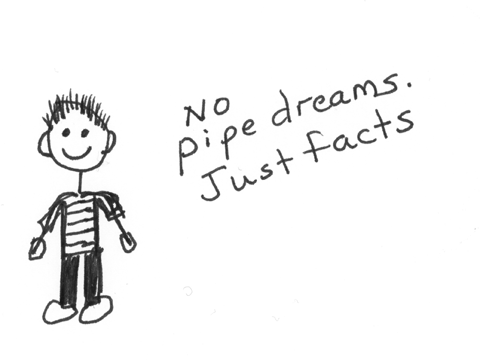 NO
pipe dreams.
Just facts